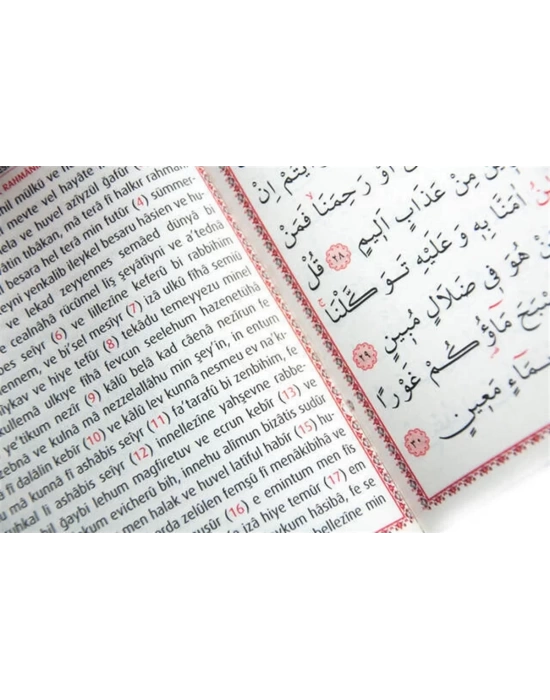 RAHMAN
nil mülkü ve
mevte vel hayâte
ela ve huvel azîyzül ğafûr
vâtin tıbâkan, mâ terâ fî halkır rahmâ
besara hel terâ min futûr (4) sümmer-
teyni yenkalib ileykel besaru hâsien ve hu-
ve lekad zeyyennes semâed dünyâ bi
e cealnâhâ rücûmel liş şeyâtiyni ve a'tednâ
bes seiyr (6) ve lillezîne keferû bi rabbihim
ennem, ve bi'sel mesîyr (7) izâ ülkû fîhâ semiû
hîykav ve hiye tefûr (8) tekâdu temeyyezu minel
küllemâ ulkıye fîhâ fevcun seelehum hazenetühâ
ye'tikum nezîr (9) kâlû belâ kad câenâ nezîrun fe
zebnâ ve kulnâ mâ nezzelallâhu min şey'in, in entum
fî dalâlin kebîr (10) ve kâlû lev kunnâ nesmeu ev na'k-
mâ kunnâ fî ashâbis seiyr (11) fa'tarafû bi zenbihim, fe
uhkal li ashâbis seiyr (12) innellezîne yahşevne rabbe-
bil ğaybi lehum mağfiretuv ve ecrun kebîr (13) ve
kum evicherû bih, innehu alîmun bizâtis sudûr
men halak ve huvel latîful habîr (15) hu-
arda zelûlen femşû fî menâkibihâ ve
nuşûr (16) e emintum men fis
izâ hiye temûr (17) em
aykum hâsibâ, fe se
bellezîne min
اِنْ
اَوْ رَحِمَنَا فَمَنْ
مِنْ عَذَابٍ اَلِيمٍ ٢٨ قُلْ
اٰمَنَّا بِهِ وَ عَلَيْهِ تَوَكَّلْنَا
هُوَ فِى ضَلَالٍ مُبِينٍ ٢٩
مَاؤُكُمْ غَوْرًا
مَعِينٍ ٣٠